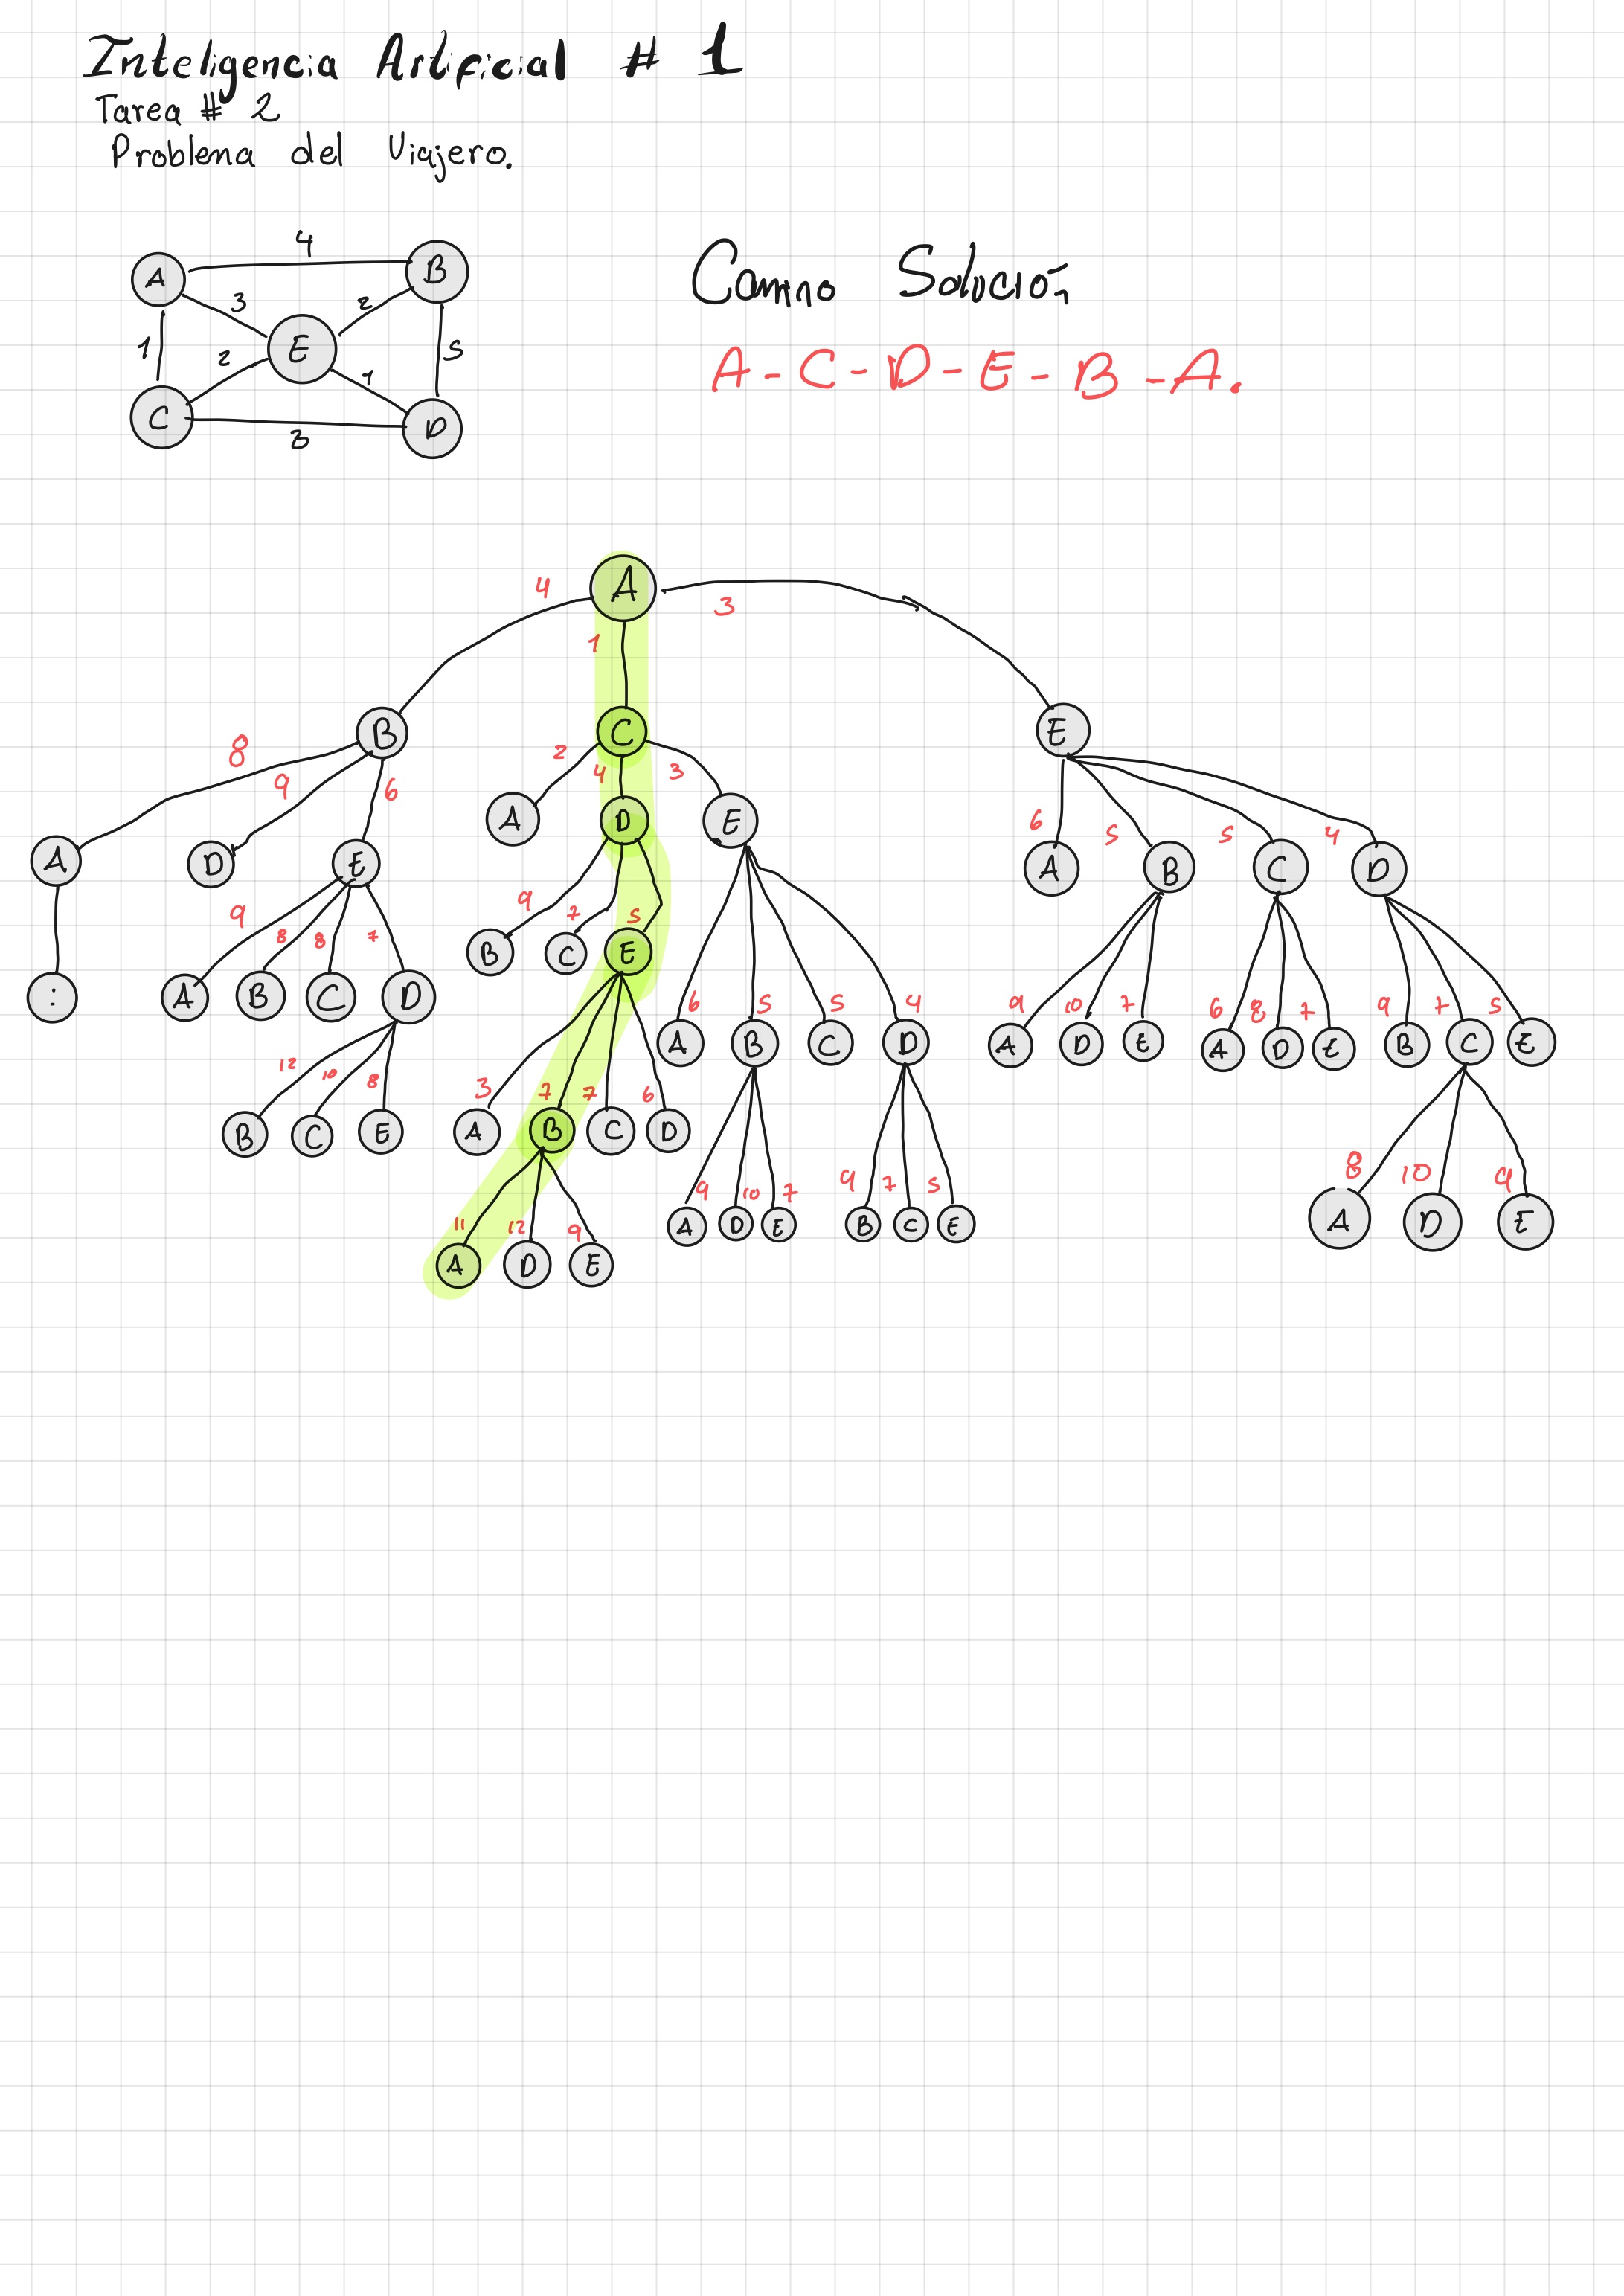 Inteligencia Artificial # 1
Tarea # 2
Problema del Viajero.
4
A B
3 2
1 E 5
2 1
C D
3
Camino Solución
A - C - D - E - B - A.
A
4 1 3
B C E
8 9 6 2 4 3 6 5 5 4
A D E A D E A B C D
9 8 8 7 9 7 5
: A B C D B C E
6 5 5 4 9 10 7 6 8 7 9 7 5
A B C D A D E A D E B C E
12 10 8 3 7 7 6
B C E A B C D
9 10 7 9 7 5 8 10 9
A D E B C E A D E
11 12 9
A D E